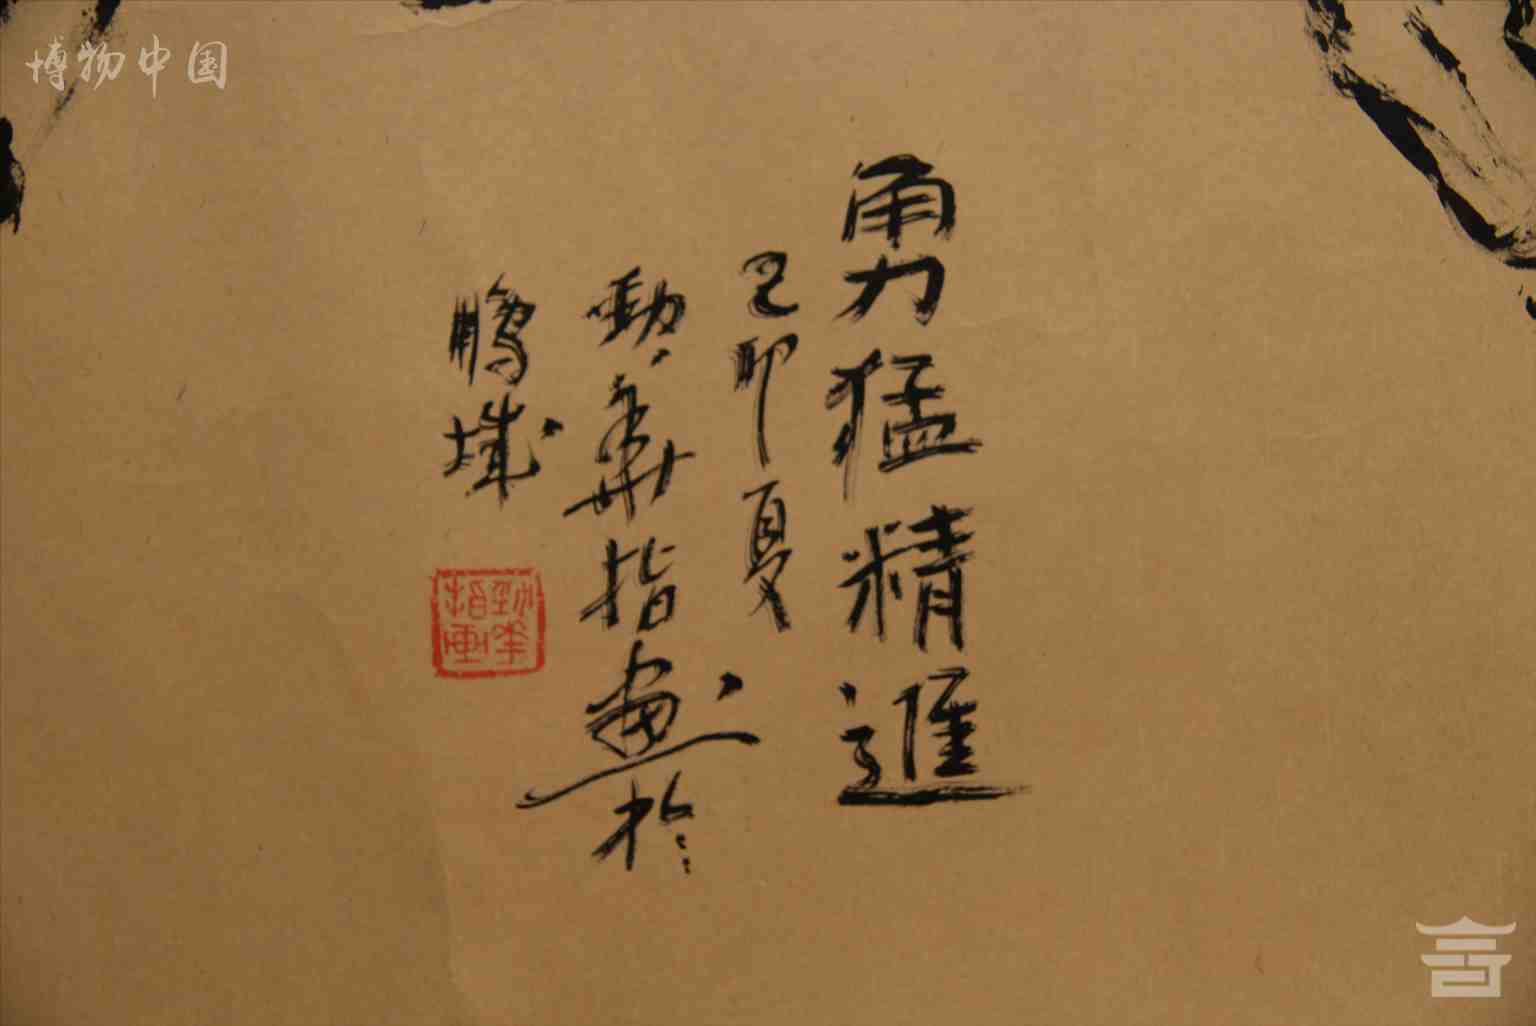 博物中国
勇猛精進
己卯夏
勁華指畫於
鵬城
勁華
指画